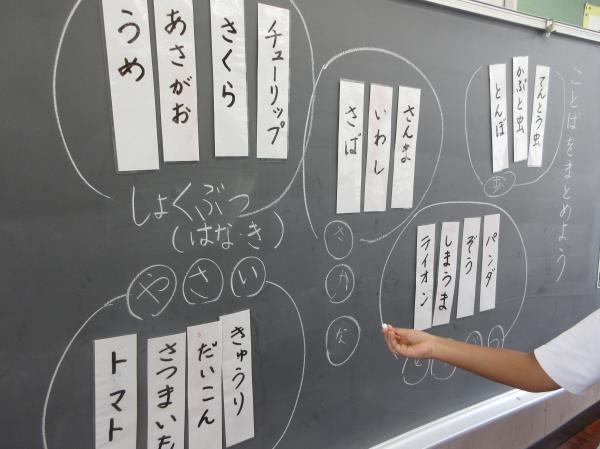 ことばをまとめよう
てんとう虫
かぶと虫
とんぼ
虫
パンダ
ぞう
しまうま
ライオン
さんま
いわし
さば
さかな
チューリップ
さくら
あさがお
うめ
しょくぶつ
(はな・き)
やさい
きゅうり
だいこん
さつまいも
トマト